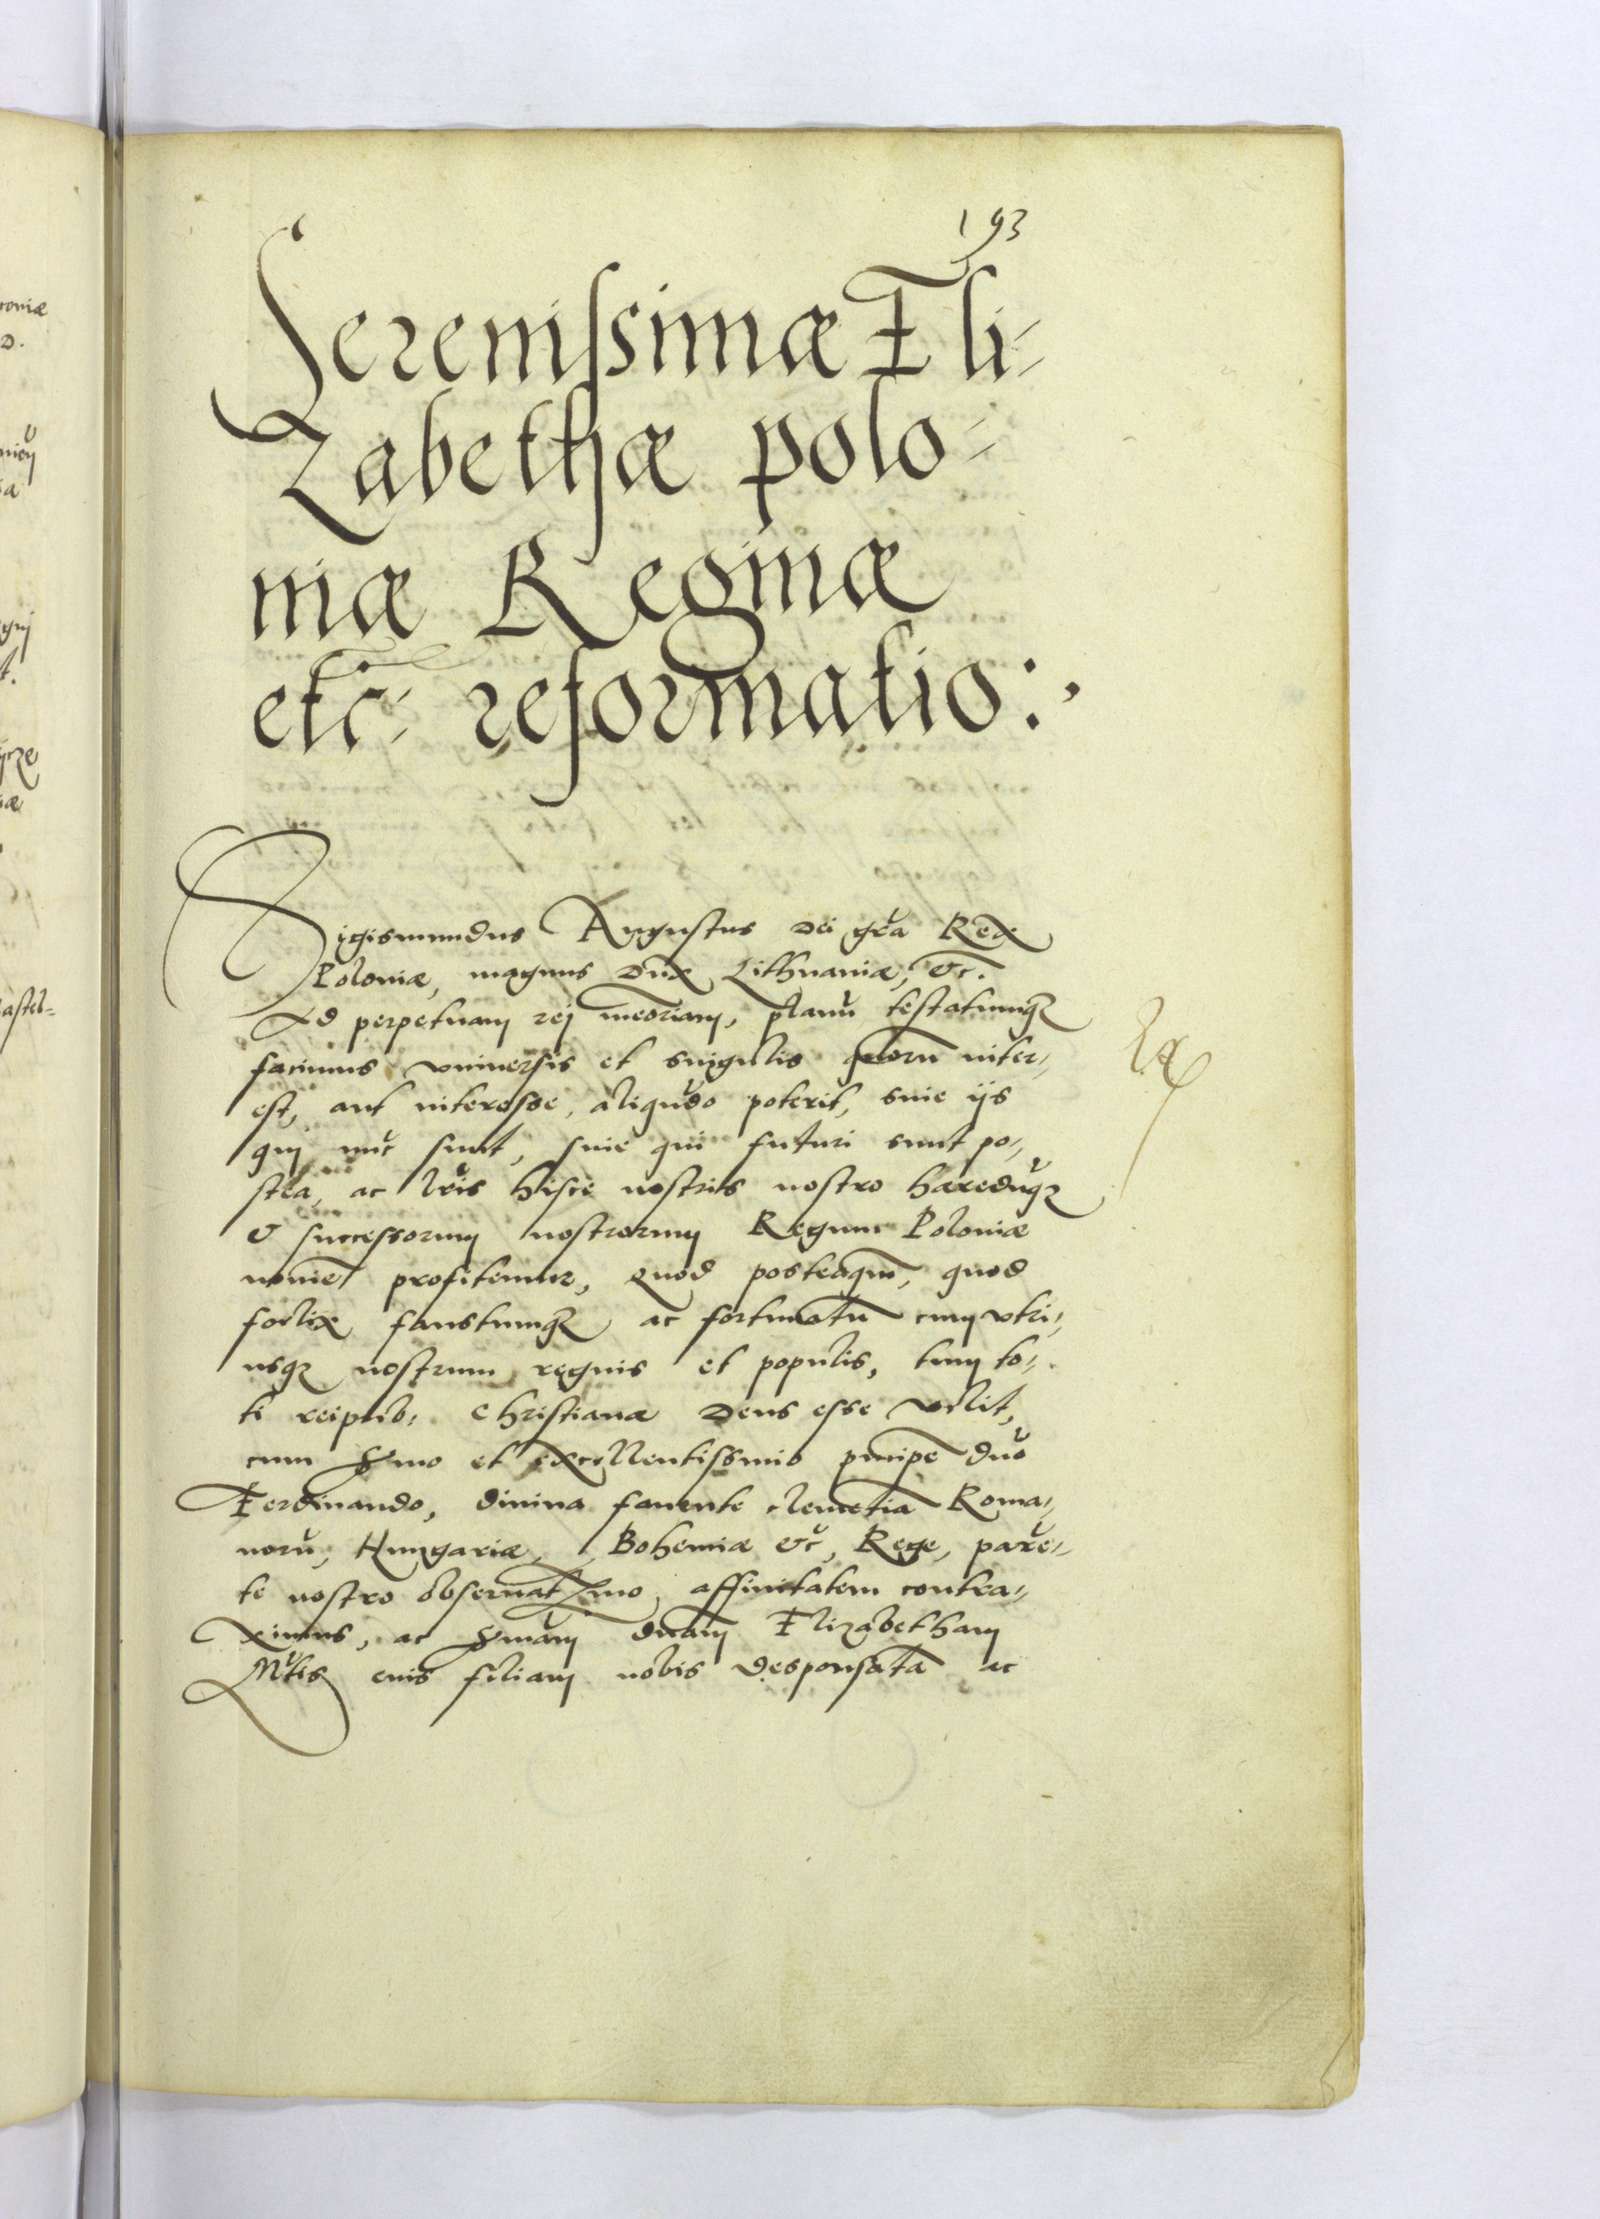 193
Serenissimæ Eli-
Zabethæ polo-
niæ Reginæ
etc: reformatio:,
Sigismundus Augustus Dei gra Rex
Poloniæ, magnus Dux Lithuaniæ, etc.
Ad perpetuam rej meoriam, planu testatumqz
facimus vniversis et singulis quoru inter,
est, aut interesse, aliqudo poterit, siue ijs
qui nuc sunt, siue qui futuri sunt po,
stea, ac lris hisce nostris nostro haereduqz
& successorum nostrorum Regum Poloniæ
nomie profitemur, quod posteaqm, quod
foelix faustumqz ac fortunatu cum vtri,
usqz nostrum regnis et populis, tum to,
ti reipub: Christianæ Deus esse velit,
cum Smo et excellentissimo pncipe Dno
Ferdinando, divina favente clemetia Roma,
noru, Hungariæ, Bohemiæ etc, Rege, pare,
te nostro observatSmo, affinitatem contra,
ximus, ac Smam dnam Elizabetham
Mtis eius filiam nobis desponsata ac
roniæ
D.
astel-